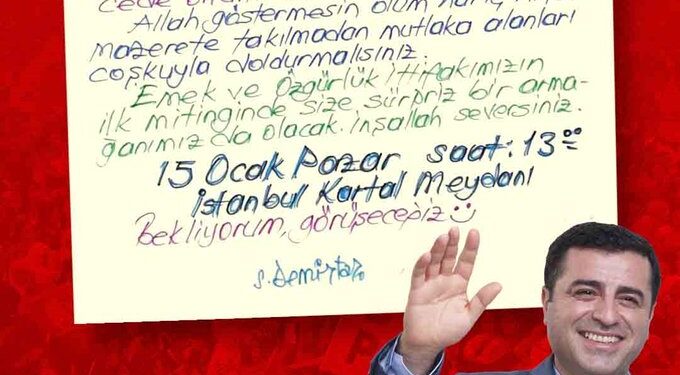 Allah göstermesin ölüm hariç
mazerete takılmadan mutlaka alanları
coşkuyla doldurmalısınız.
Emek ve Özgürlük İttifakımızın
ilk mitinginde size sürpriz bir arma-
ğanımız da olacak. İnşallah seversiniz.
15 Ocak Pazar saat: 13 00
İstanbul Kartal Meydanı
Bekliyorum, görüşeceğiz
S. Demirtaş